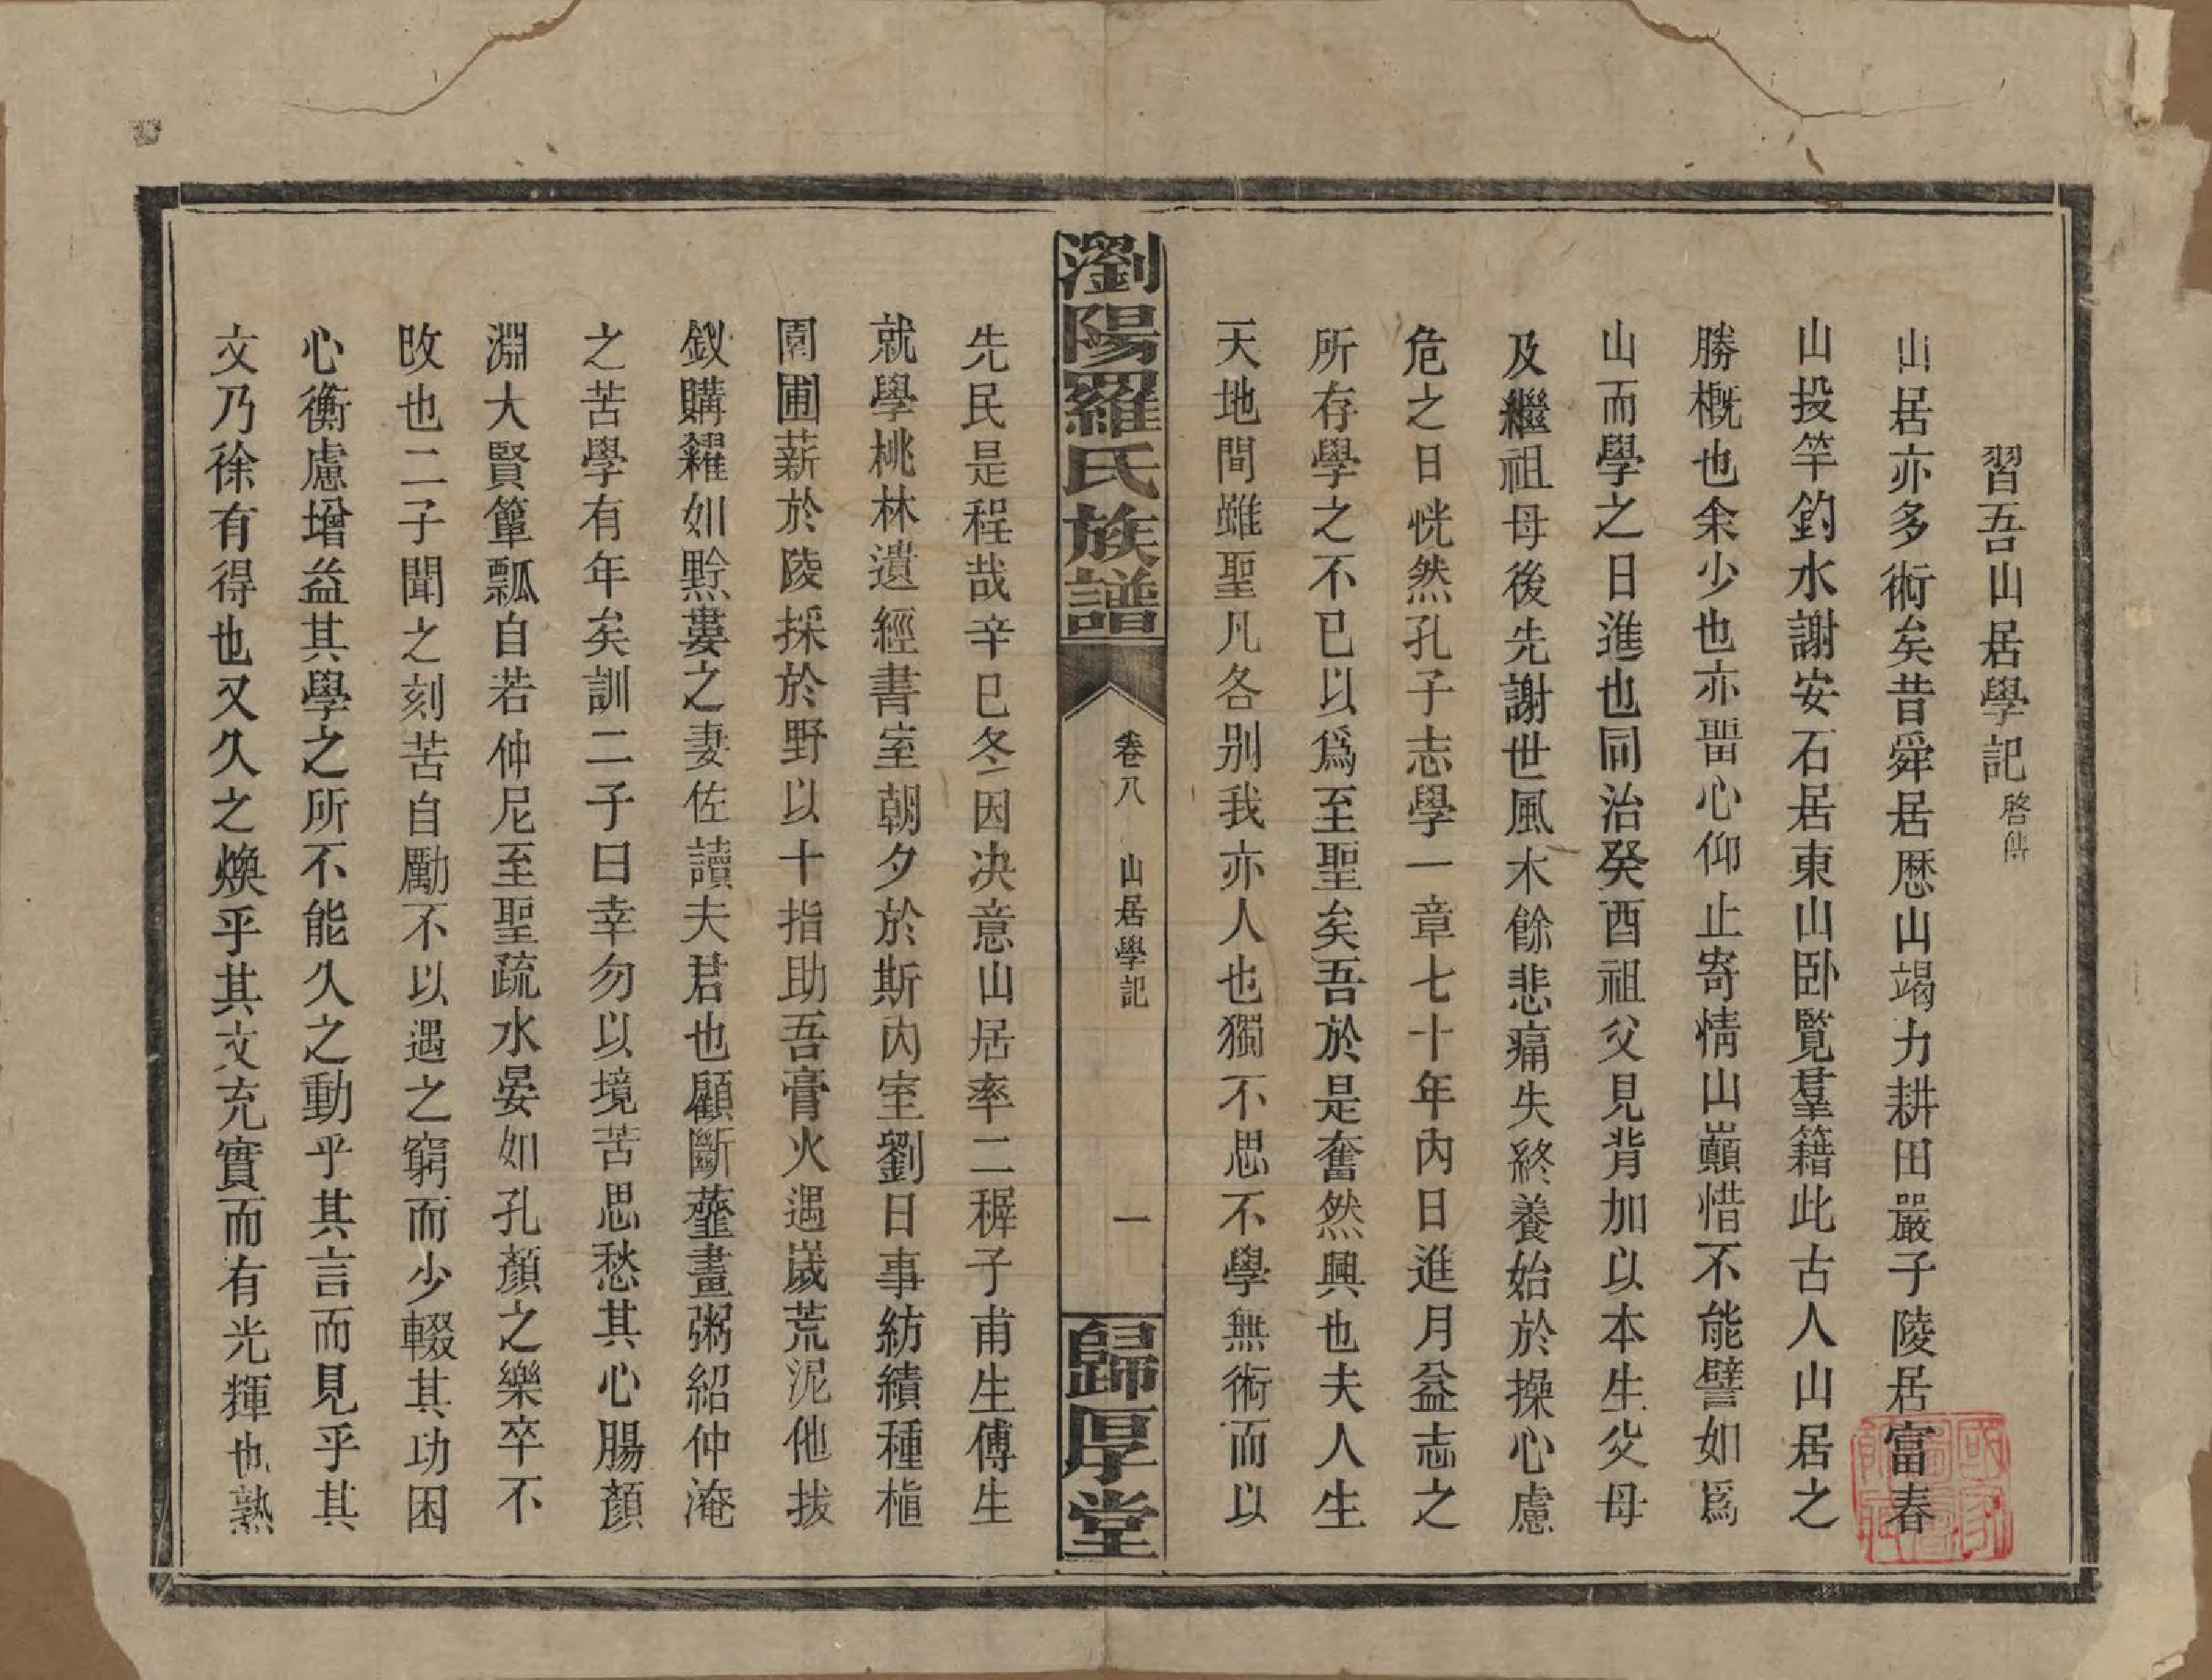 習吾山居學記 啓傳
山居亦多術矣昔舜居歷山竭力耕田嚴子陵居富春
山投竿釣水謝安石居東山卧覧羣籍此古人山居之
勝概也余少也亦畱心仰止寄情山巔惜不能譬如爲
山而學之日進也同治癸酉祖父見背加以本生父母
及繼祖母後先謝世風木餘悲痛失終養始於操心慮
危之日恍然孔子志學一章七十年內日進月益志之
所存學之不已以爲至聖矣吾於是奮然興也夫人生
天地間雖聖凡各別我亦人也獨不思不學無術而以
瀏陽羅氏族譜
卷八 山居學記 一
歸厚堂
先民是程哉辛巳冬因决意山居率二穉子甫生傅生
就學桃林遺經書室朝夕於斯內室劉日事紡績種植
園圃薪於陵採於野以十指助吾膏火遇歲荒泥他拔
釵購糴如黔婁之妻佐讀夫君也顧斷虀畫粥紹仲淹
之苦學有年矣訓二子曰幸勿以境苦思愁其心腸顏
淵大賢簞瓢自若仲尼至聖疏水晏如孔顏之樂卒不
攺也二子聞之刻苦自勵不以遇之窮而少輟其功困
心衡慮增益其學之所不能久之動乎其言而見乎其
文乃徐有得也又久之煥乎其文充實而有光輝也熟